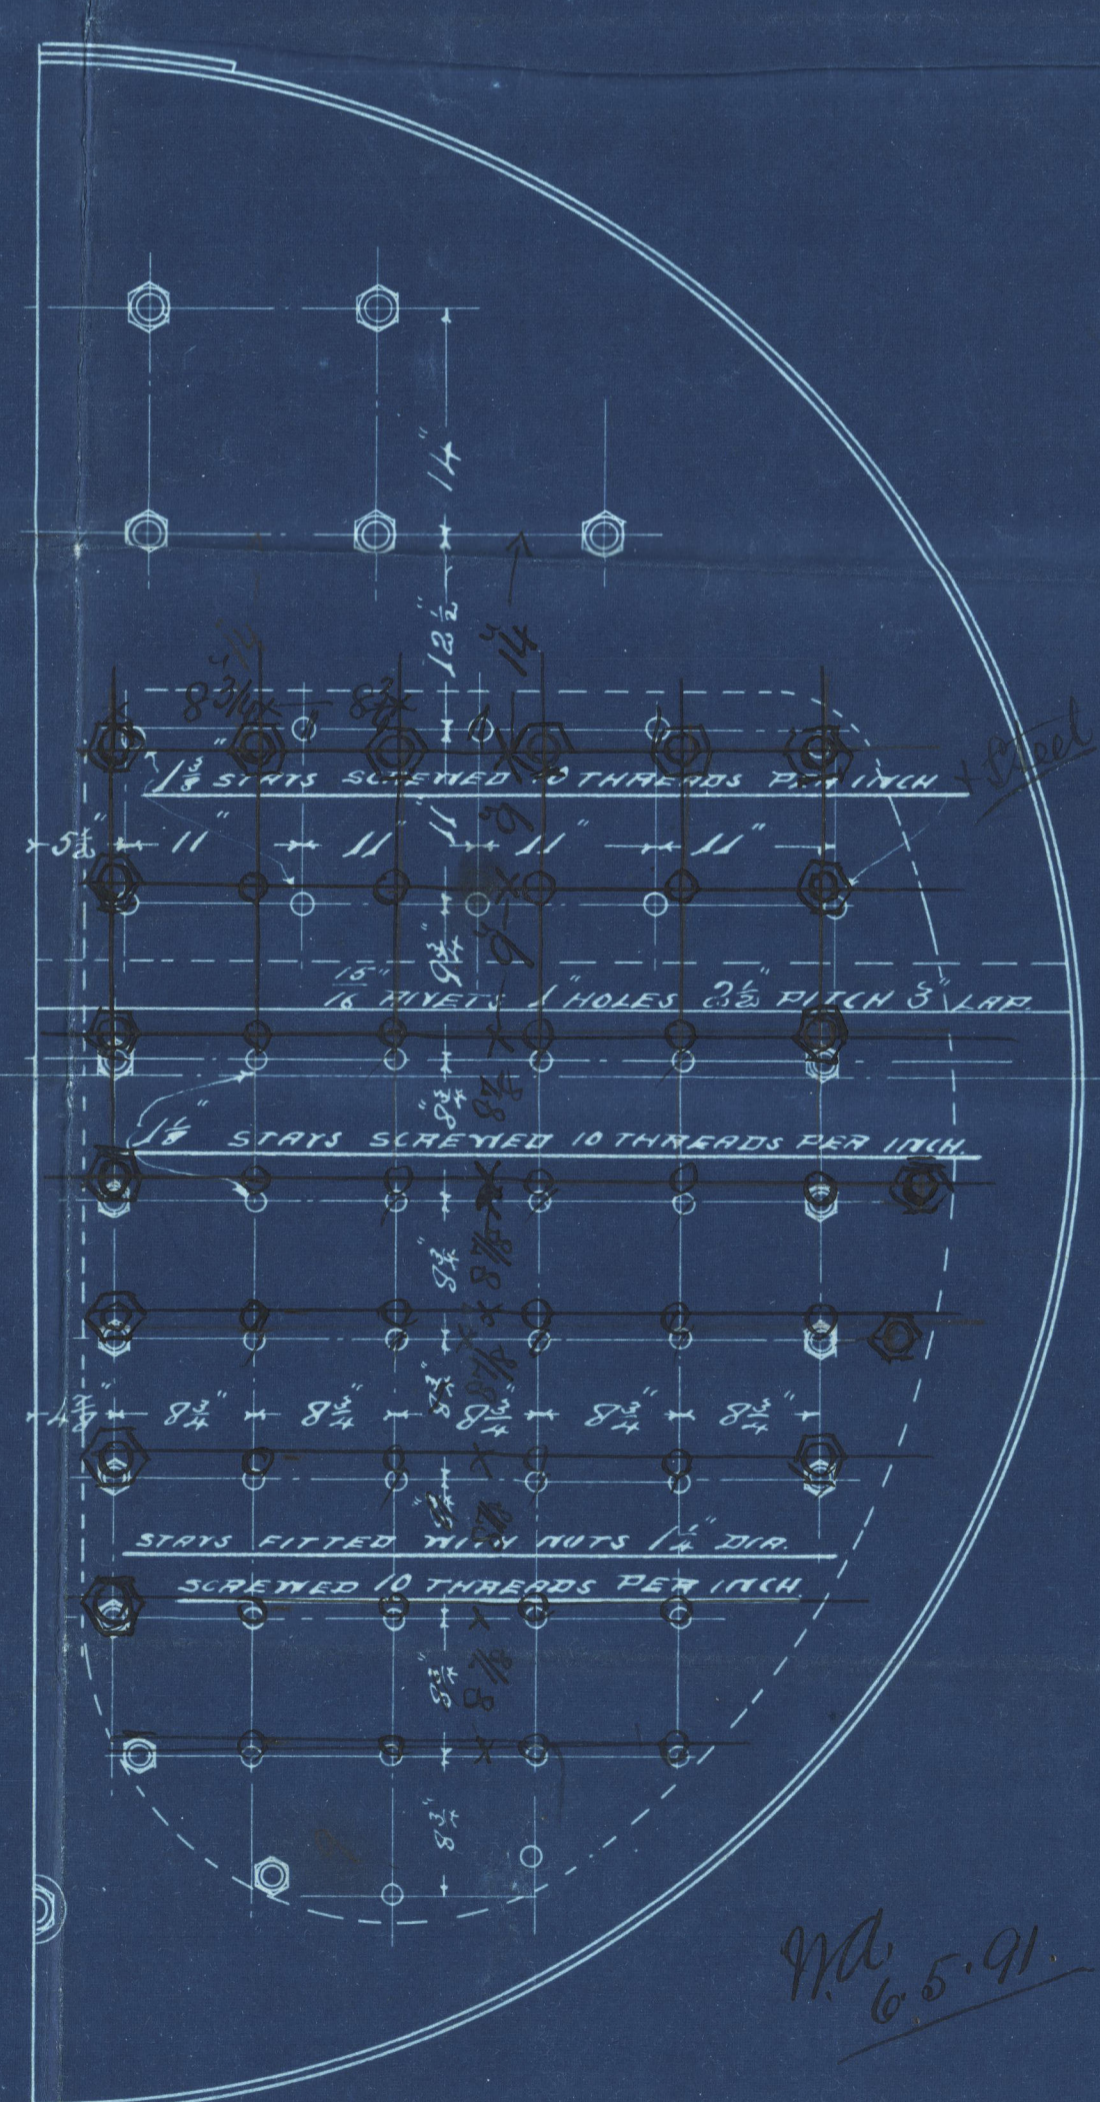 14"
12 1/2"
14"
8 3/4 8 3/4
1 3/8" STAYS SCREWED 10 THREADS PER INCH + Steel
11" 9"
5 1/2" 11" 11" 11" 11"
9 3/4" 9"
15/16" RIVETS 1" HOLES 2 1/2" PITCH 3" LAP.
8 3/4" 8 7/8
STAYS SCREWED 10 THREADS PER INCH.
8 3/4" 8 7/8
8 3/4" 8 7/8
8 3/4" 8 3/4" 8 3/4" 8 3/4" 8 3/4"
STAYS FITTED WITH NUTS 1 1/4" DIA.
SCREWED 10 THREADS PER INCH
8 3/4" 8 7/8
8 3/4"
W.A.
6.5.91.